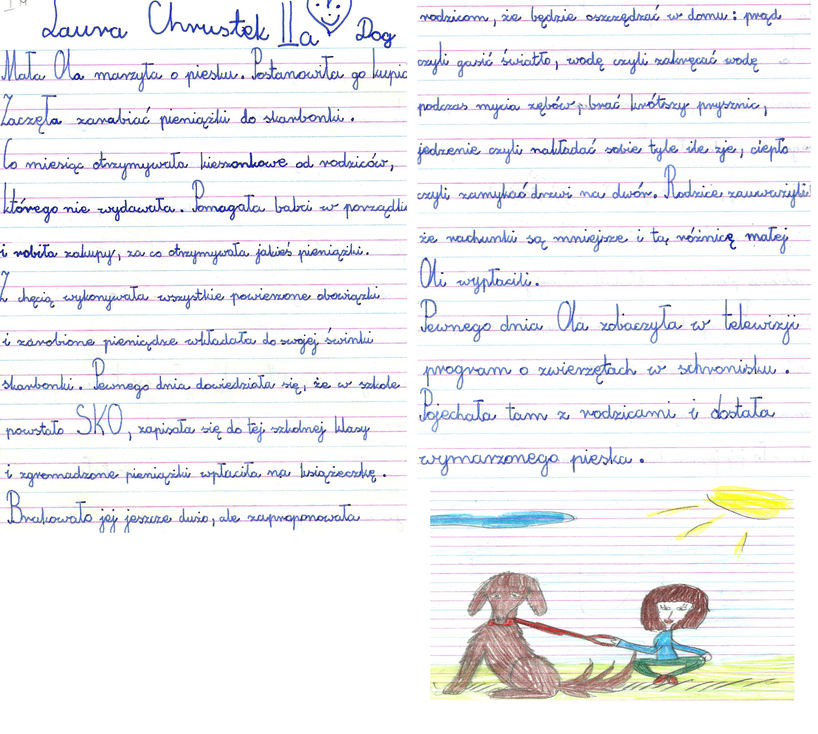 Laura Chrustek IIa Dog
Mała Ola marzyła o piesku. Postanowiła go kupić
Zaczęła zarabiać pieniążki do skarbonki.
Co miesiąc otrzymywała kieszonkowe od rodziców,
którego nie wydawała. Pomagała babci w porządku
i robiła zakupy, za co otrzymywała jakieś pieniążki.
Z chęcią wykonywała wszystkie powierzone obowiązki
i zarobione pieniądze wkładała do swojej świnki
skarbonki. Pewnego dnia dowiedziała się, że w szkole
powstało SKO, zapisała się do tej szkolnej klasy
i zgromadzone pieniążki wpłaciła na książeczkę.
Brakowało jej jeszcze dużo, ale zaproponowała
rodzicom, że będzie oszczędzać w domu: prąd
czyli gasić światło, wodę czyli zakręcać wodę
podczas mycia zębów, brać krótszy prysznic,
jedzenie czyli nakładać sobie tyle ile zje, ciepło
czyli zamykać drzwi na dwór. Rodzice zauważyli
że rachunki są mniejsze i tą różnicę małej
Oli wypłacili.
Pewnego dnia Ola zobaczyła w telewizji
program o zwierzętach w schronisku.
Pojechała tam z rodzicami i dostała
wymarzonego pieska.